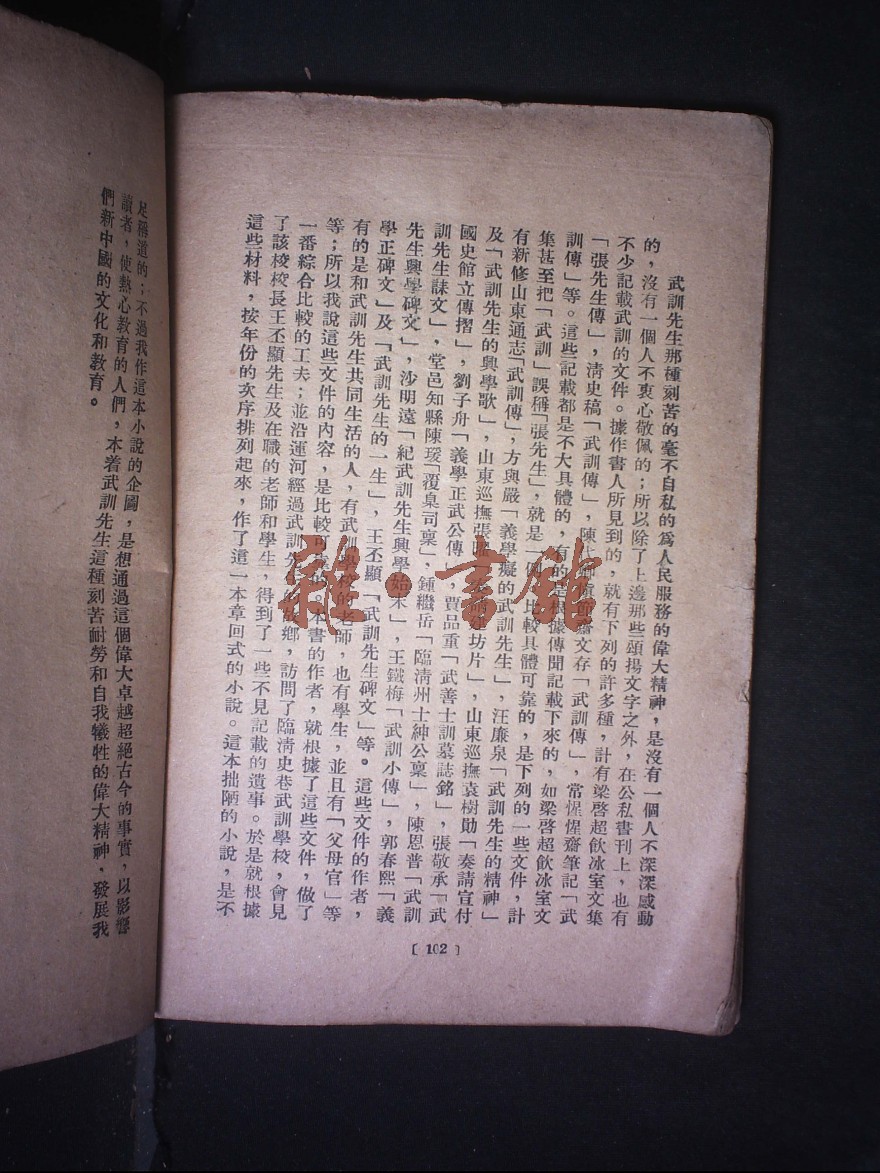 武訓先生那種刻苦的毫不自私的爲人民服務的偉大精神，是沒有一個人不深深感動
的，沒有一個人不衷心敬佩的；所以除了上邊那些頌揚文字之外，在公私書刊上，也有
不少記載武訓的文件。據作書人所見到的，就有下列的許多種，計有梁啓超飲冰室文集
「張先生傳」，清史稿「武訓傳」，陳代卿慎節齋文存「武訓傳」，常惺惺齋筆記「武
訓傳」等。這些記載都是不大具體的，有的是根據傳聞記載下來的，如梁啓超飲冰室文
集甚至把「武訓」誤稱「張先生」，就是一例。比較具體可靠的，是下列的一些文件，計
有新修山東通志「武訓傳」，方與嚴「義學癡的武訓先生」，汪廉泉「武訓先生的精神」
及「武訓先生的興學歌」，山東巡撫張曜「奏請建坊片」，山東巡撫袁樹勛「奏請宣付
國史館立傳摺」，劉子舟「義學正武公傳」，賈品重「武善士訓墓誌銘」，張敬承「武
訓先生誄文」，堂邑知縣陳瑗「覆臬司稟」，鍾繼岳「臨清州士紳公稟」，陳恩普「武訓
先生興學碑文」，沙明遠「紀武訓先生興學始末」，王鐵梅「武訓小傳」，郭春熙「義
學正碑文」及「武訓先生的一生」，王丕顯「武訓先生碑文」等。這些文件的作者，
有的是和武訓先生共同生活的人，有武訓學校的老師，也有學生，並且有「父母官」等
等；所以我說這些文件的內容，是比較可靠的。本書的作者，就根據了這些文件，做了
一番綜合比較的工夫；並沿運河經過武訓先生的故鄉，訪問了臨清史巷武訓學校，會見
了該校校長王丕顯先生及在職的老師和學生，得到了一些不見記載的遺事。於是就根據
這些材料，按年份的次序排列起來，作了這一本章回式的小說。這本拙陋的小說，是不
〔102〕
足稱道的；不過我作這本小說的企圖，是想通過這個偉大卓越超絕古今的事實，以影響
讀者，使熱心教育的人們，本着武訓先生這種刻苦耐勞和自我犧牲的偉大精神，發展我
們新中國的文化和教育。
雜·書館